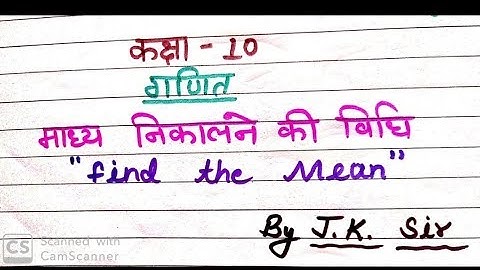 कक्षा - 10
गणित
माध्य निकालने की विधि
"find the Mean"
By J.K. Sir
CS Scanned with
CamScanner